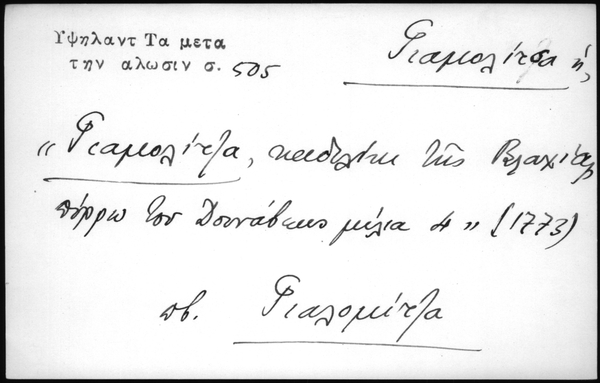 Υψηλαντ Τα μετα
την αλωσιν σ. 505
Γιαμολίτσα ἡ,
"Γιαμολίτζα, καδιλίκι τῆς Βλαχίας
πόρρω τοῦ Δουνάβεως μίλια 4" (1773)
πβ. Γιαλομίτζα